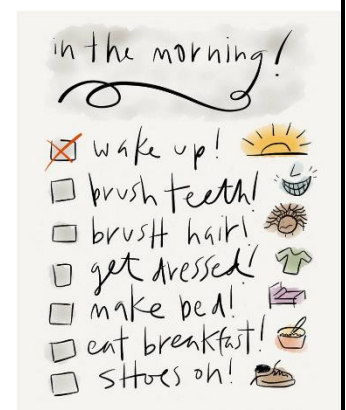 in the morning!
wake up!
brush teeth!
brush hair!
get dressed!
make bed!
eat breakfast!
shoes on!